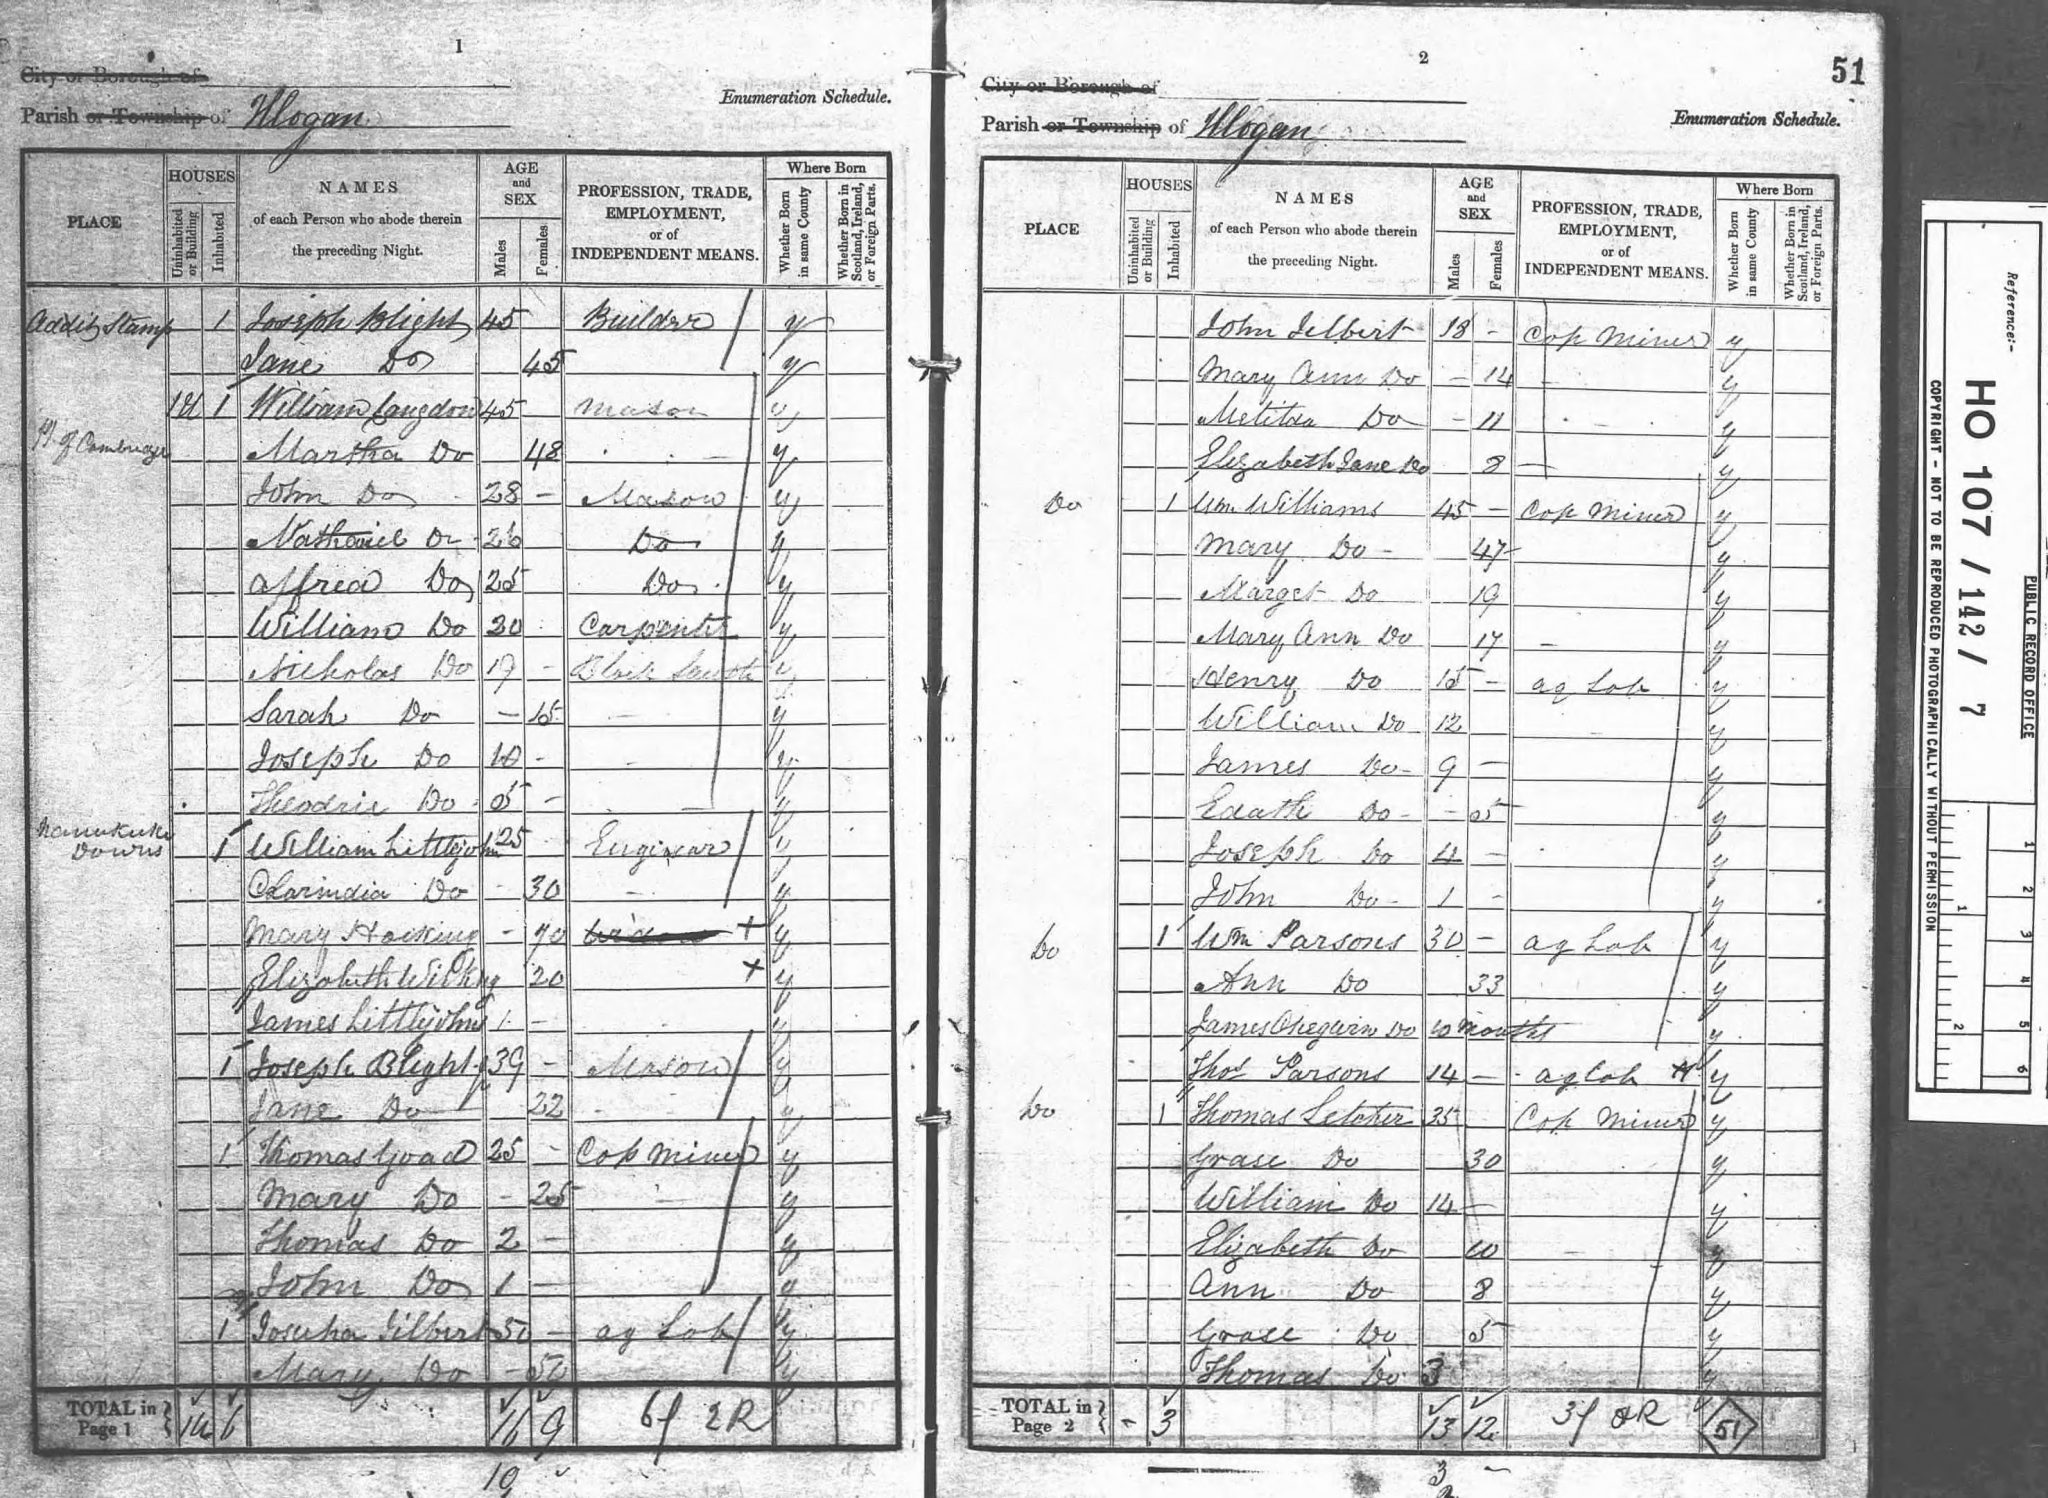 1
City or Borough of
Parish or Township of Illogan
Enumeration Schedule.
PLACE
HOUSES
Uninhabited or Building
Inhabited
NAMES
of each Person who abode therein
the preceding Night.
AGE
and
SEX
Males
Females
PROFESSION, TRADE,
EMPLOYMENT,
or of
INDEPENDENT MEANS.
Where Born
Whether Born in same County
Whether Born in Scotland, Ireland, or Foreign Parts.
Addit Stamp 1 Joseph Blight 45 Builder y
Jane Do 45 y
1 William Langdon 45 Mason y
of Cambridge Martha Do 48 y
John Do 28 - Mason y
Nathaniel Do 26 Do y
Alfred Do 25 Do y
William Do 20 Carpenter y
Nicholas Do 17 - Black Smith y
Sarah Do - 15 y
Joseph Do 10 - y
Do 5 - y
Downs 1 William Littlejohn 25 Enginear y
Do - 30 - y
Mary Hocking - 70 + y
Elizabeth 20 + y
James Littlejohn 1 - y
1 Joseph Blight 39 - Mason y
Jane Do 22 y
1 Thomas Goad 25 - Cop Miner y
Mary Do - 25 y
Thomas Do 2 - y
John Do 1 - y
1 Gilbert 50 - ag Lab y
Mary Do - 50 y
TOTAL in
Page 1 6 16 9 6f 2R
10
2
51
City or Borough of
Parish or Township of Illogan
Enumeration Schedule.
PLACE
HOUSES
Uninhabited or Building
Inhabited
NAMES
of each Person who abode therein
the preceding Night.
AGE
and
SEX
Males
Females
PROFESSION, TRADE,
EMPLOYMENT,
or of
INDEPENDENT MEANS.
Where Born
Whether Born in same County
Whether Born in Scotland, Ireland, or Foreign Parts.
John Jelbert 18 - Cop Miner y
Mary Ann Do - 14 - y
Do - 11 - y
Elizabeth Jane Do 8 - y
Do 1 Wm Williams 45 - Cop Miner y
Mary Do - 47 y
Marget Do 19 y
Mary Ann Do 17 - y
Henry Do 15 - ag Lab y
William Do 12 y
James Do - 9 - y
Do - - 5 y
Joseph Do 4 - y
John Do - 1 - y
Do 1 Wm Parsons 30 - ag Lab y
Ann Do 33 y
James Chegwin Do 10 months y
Thos Parsons 14 - ag Lab y
Do 1 Thomas Letcher 35 Cop Miner y
Grase Do 30 y
William Do 14 - y
Elizabeth Do 10 - y
Ann Do 8 y
Grase Do 5 y
Thomas Do 3 y
TOTAL in
Page 2 - 3 13 12 3f 51
3
Reference:-
HO 107 / 142 / 7
PUBLIC RECORD OFFICE
COPYRIGHT - NOT TO BE REPRODUCED PHOTOGRAPHICALLY WITHOUT PERMISSION
1 2 3 4 5 6
1 2